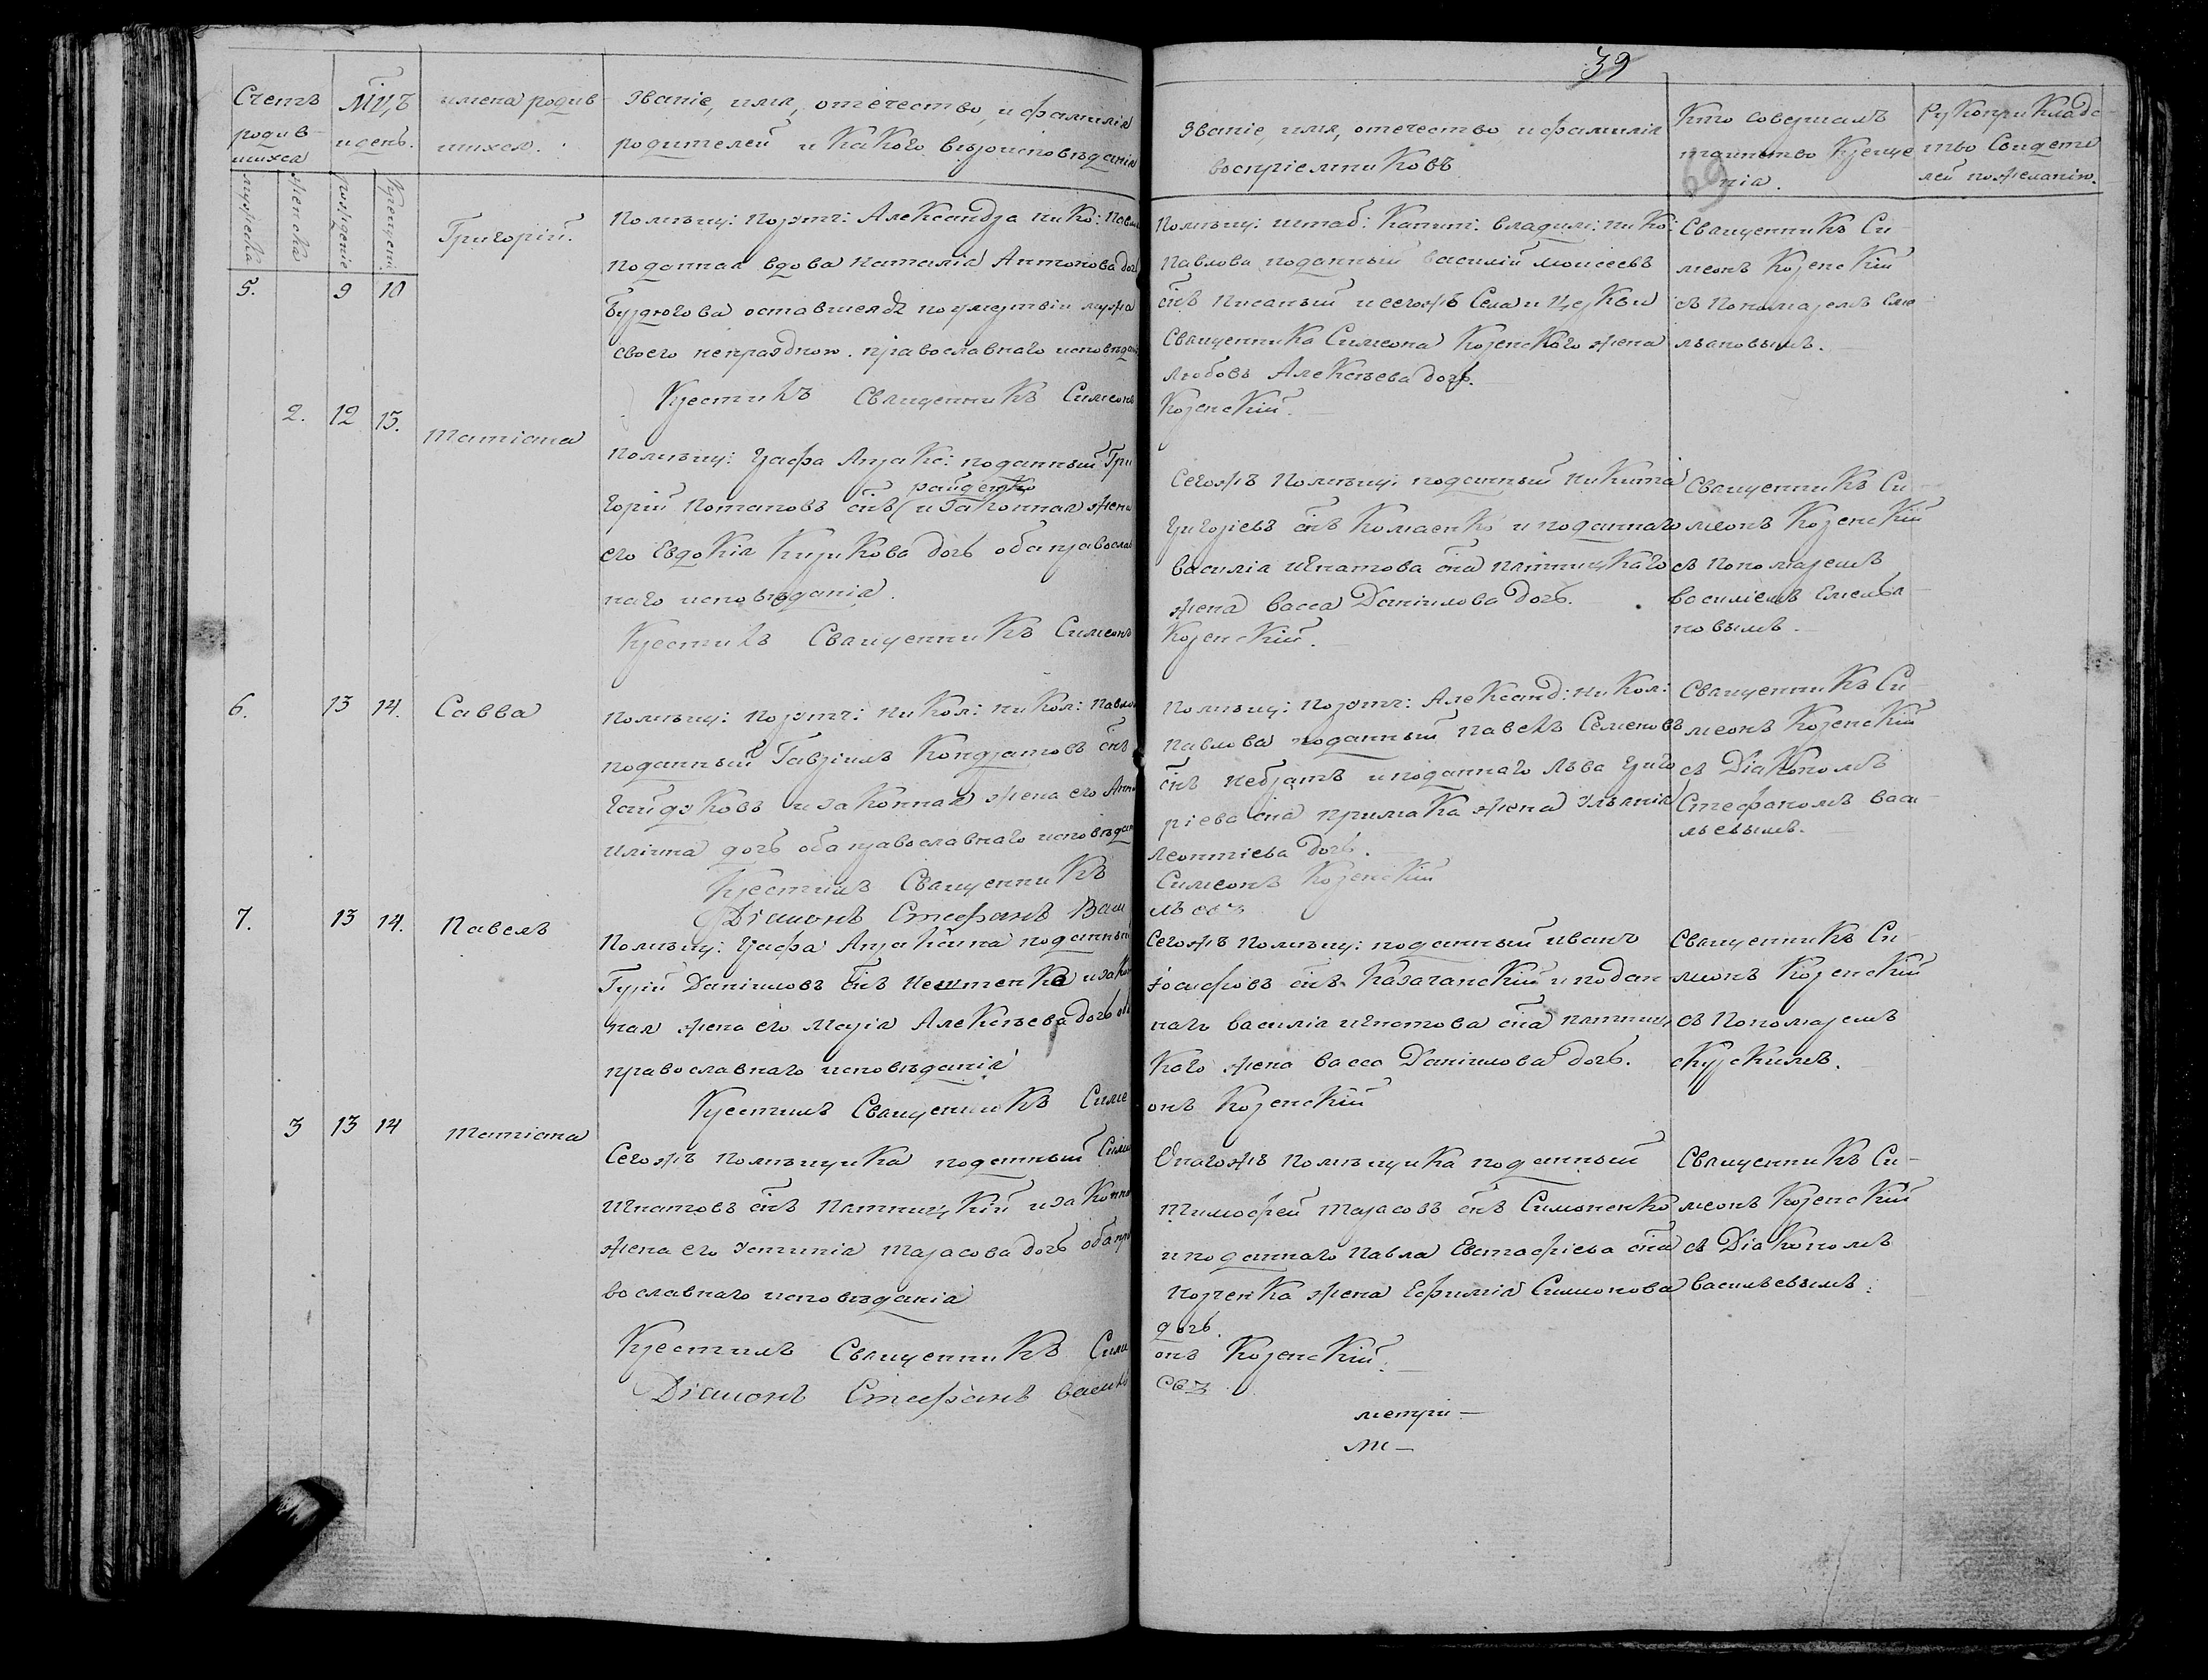 39
Счетъ родив-
шихся
Мц,ъ
и день.
имена родив-
шихся.
Званіе, имя, отечество, и фамилія
родителей и какого вѣроисповѣданія
Званіе, имя, отечество и фамилія
воспріемниковъ
Кто совершалъ
таинство Креще
нія.
69
Рукоприкладс
тво Свидете
лей пожеланію.
мужеска
женска
рожденіе
Крещеніе
5.
9
10
Григорій.
Помѣщ: порутч: Александра Нико: Павло
поданная вдова Наталіа Антонова доч
оставшеяся посмертыи мужа
своего непраздною. православнаго исповѣдан
Крестилъ Священникъ Симеонъ
Помѣщ: штаб: Капит: владим: нико:
Павлова поданный василій моисеевъ
снъ Писаный и сегожъ Села и Церкви
Священника Симеона Коренского жена
Любовь Алексѣева дочь.
Коренскій.
Священникъ Си-
меонъ Коренскій
съ Пономаремъ Еме-
льановымъ.
2.
12
13.
Татіана
Помѣщ: Графа Апракс: поданный Гри
горій Потаповъ снъ и Законная жена
райденко
его Евдокія Кирикова дочь оба православ
наго исповѣданія.
Крестилъ Священникъ Симеонъ
Сегожъ Помѣщ: поданный Никита
Григоріевъ снъ Комаенко и поданнаго
василіа Игнатова сна Пятницкаго
жена васса Даніилова дочь.
Коренскій.
Священникъ Си-
меонъ Коренскій
съ Пономаремъ
василіемъ Емелья-
новымъ.
6.
13
14.
Савва
помѣщ: порутч: Никол: Никол: Павлов
поданный Гавріилъ Кондратовъ снъ
Гайдуковъ и законная жена его Анна
Иліина дочь оба православнаго исповѣдан
Крестилъ Священникъ
Діаконъ Стефанъ Васи
Помѣщ: порутч: Александ: Никол:
Павлова поданный павелъ Семеновъ
снъ Небратъ и поданнаго Льва Григо
ріева сна примака жена Ульянія
Леонтіева дочь.
Симеонъ Коренскій
льевъ
Священникъ Си-
меонъ Коренскій
съ Діакономъ
Стефаномъ Васи-
льевымъ.
7.
13
14.
Павелъ
Помѣщ: Графа Апраксина поданный
Гурій Даніиловъ снъ Нештенко и закон
ная жена его Маріа Алексѣева дочь оба
православнаго исповѣданія
Крестилъ Священникъ Симе
Сегожъ помѣщ: поданный иванъ
Іосифовъ снъ Казачанскій и подан
наго василія игнатова сна пятниц
каго жена васса Даніилова дочь.
онъ Коренскій
Священникъ Си-
меонъ Коренскій
съ Пономаремъ
скурскимъ.
3
13
14
Татіана
Сегожъ помѣщика поданный Симе
Игнатовъ снъ Пятницкій и законна
жена его Устинія Тарасова дочь оба пра
вославнаго исповѣданія
Крестилъ Священникъ Симе
Діаконъ Стефанъ Василь
Онагожъ Помѣщика поданный
Тимофей Тарасовъ снъ Симоненко
и поданнаго Павла Евстафіева сна
жена Ефимія Симонова
дочь.
онъ Коренскій.
евъ
Священникъ Си-
меонъ Коренскій
съ Діакономъ
Васильевымъ.
метри-